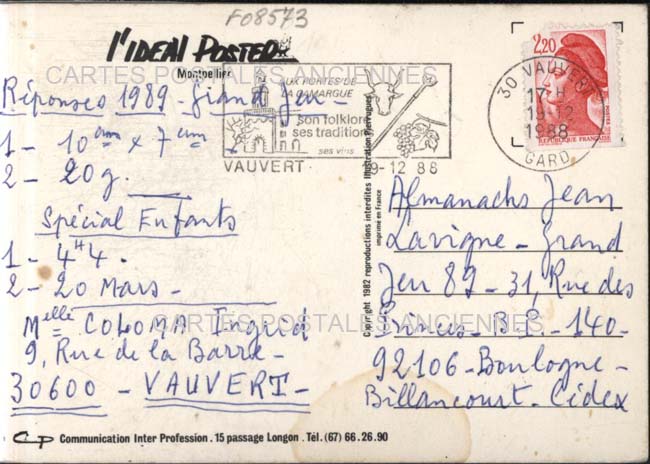 F08573
l'IDEAL POSTER
CARTES POSTALES ANCIENNES
Montpellier
Réponses 1989 - Grand Jeu -
1 - 10 cm x 7 cm
2 - 20 g.
Spécial Enfants
1 - 4H4.
2 - 20 Mars -
Melle COLOMA Ingrid
9, Rue de la Barre -
30600 - VAUVERT -
CARTES POSTALES ANCIENNES
AUX PORTES DE
LA CAMARGUE
son folklore
ses traditions
ses vins
VAUVERT
9-12 88
2,20
POSTES
REPUBLIQUE FRANÇAISE
30 VAUVERT
17 H
19 12
1988
GARD
Copyright 1982 reproductions interdites illustration
imprimé en France
Almanachs Jean
Lavigne - Grand
Jeu 89 - 31, Rue des
Princes - B.P. - 140 -
92106 - Boulogne -
Billancourt - Cédex
CP Communication Inter Profession . 15 passage Longon . Tél. (67) 66.26.90